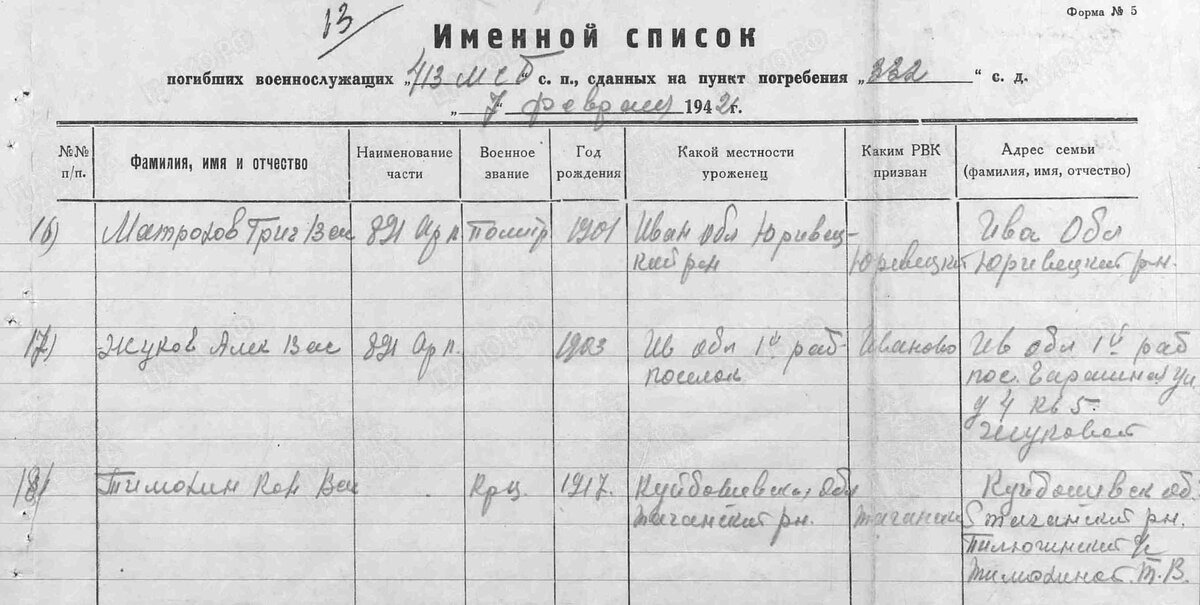 13/
Форма № 5
Именной список
погибших военнослужащих „413 мсб с. п., сданных на пункт погребения „332“ с. д.
„7“ февраля 1942 г.
№№ п/п.
Фамилия, имя и отчество
Наименование части
Военное звание
Год рождения
Какой местности уроженец
Каким РВК призван
Адрес семьи (фамилия, имя, отчество)
16) Матрохов Григ Вас 891 Ар п. 1901 Иван Обл Юривец- Ива Обл
кий рн Юревецкий Юривецкий рн.
17) Жуков Алек Вас 891 Ар п. 1903 Ив обл 1й раб- Иваново Ив обл 1й раб
поселок пос. ул
д 4 кв 5.
Жуковой
18) Тимохин Вас Крц. 1917. Куйбошевская Обл Куйбошевск об
рн. рн.
Тимохиной Т.В.